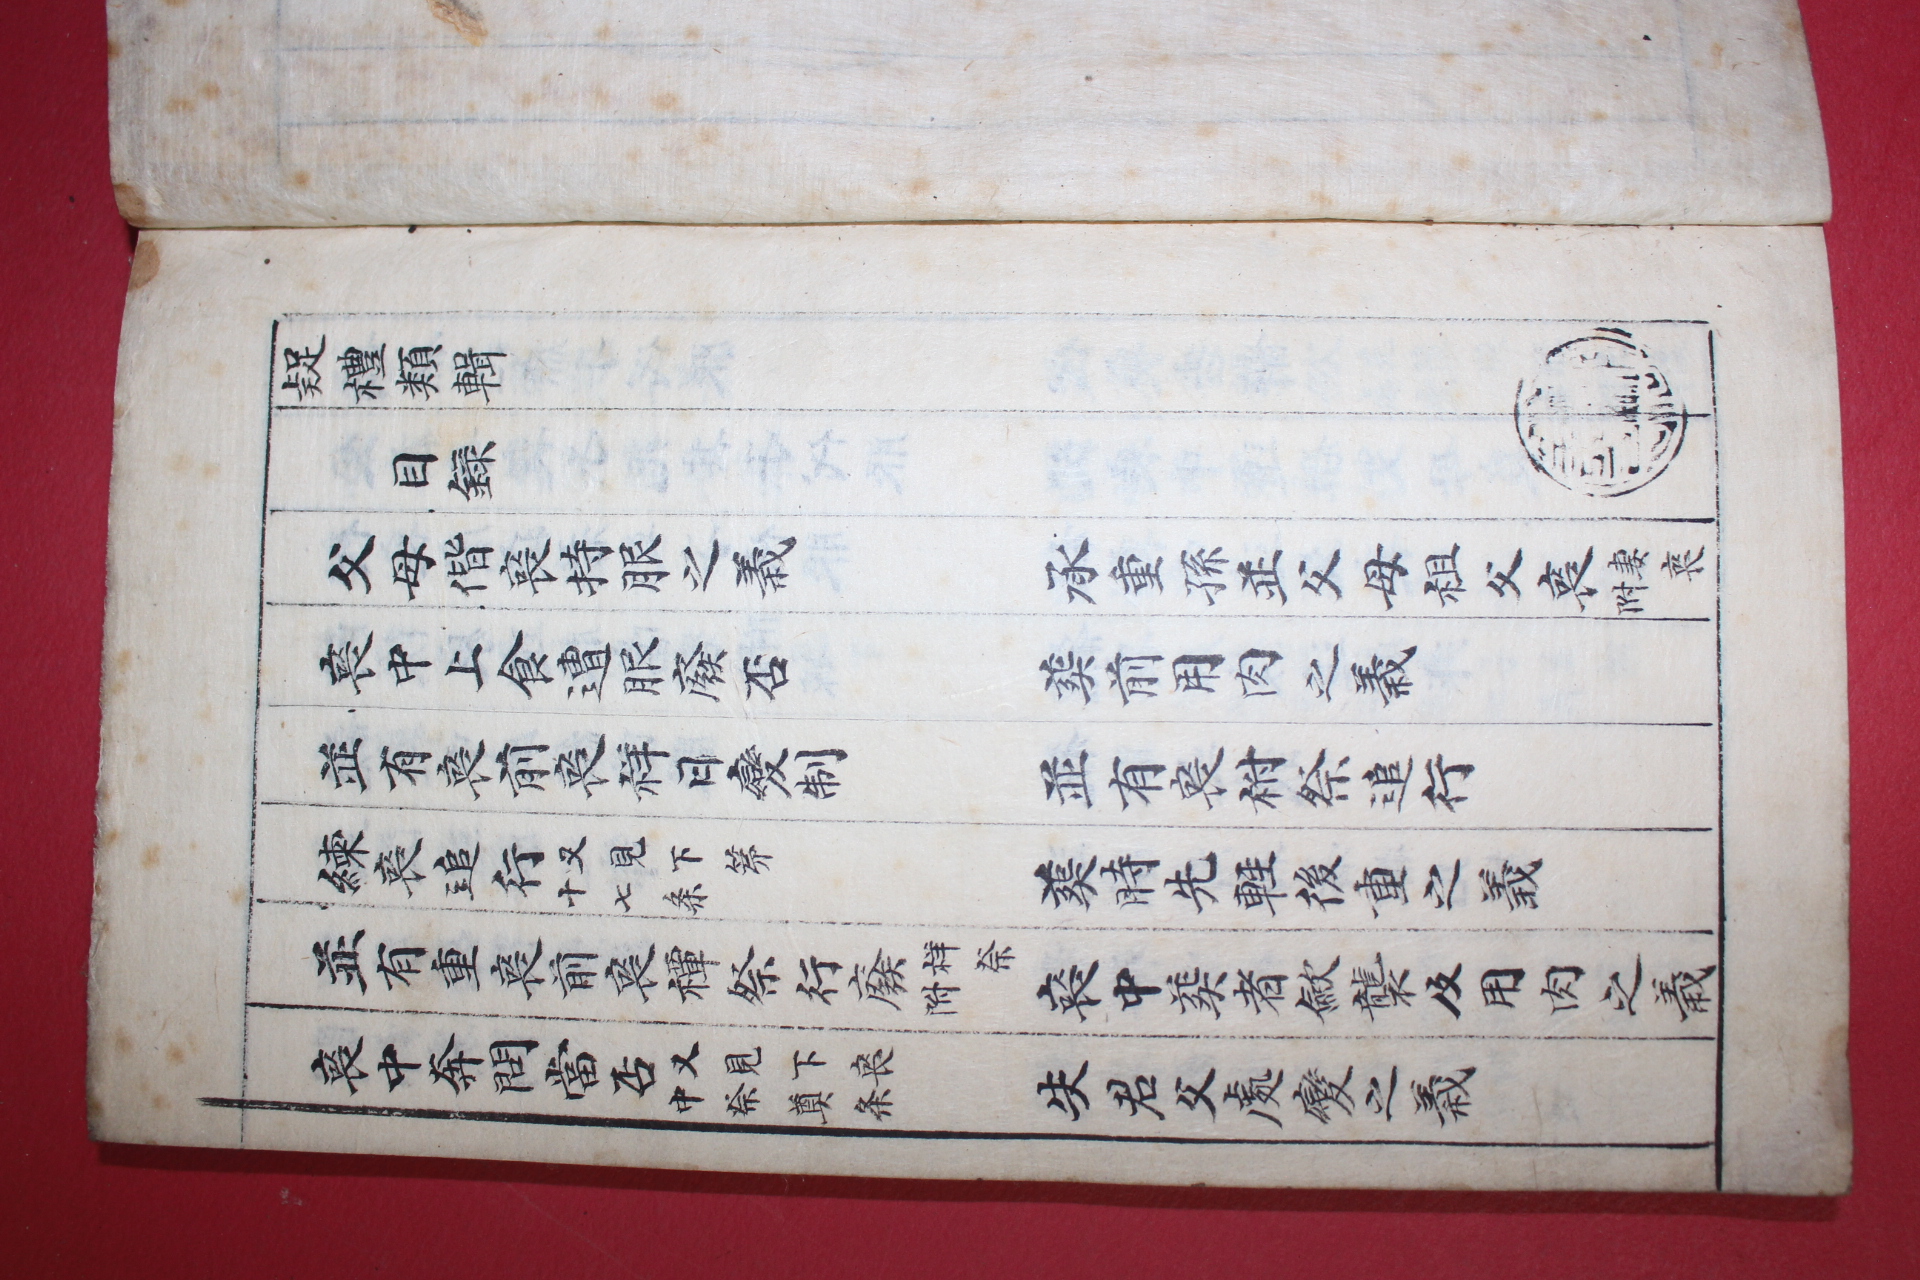 疑禮類輯
目録
父母偕喪持服之義　承重孫並父母祖父喪妻喪附
喪中上食遭服廢否　葬前用肉之義
並有喪前喪祥日變制　並有喪祔祭追行
練喪追行又見下第十七条　葬時先輕後重之義
並有重喪前喪禫祭行廢祥祭附　喪中葬者斂襲及用肉之義
喪中奔問當否又見下喪中祭奠条　失君父處變之義